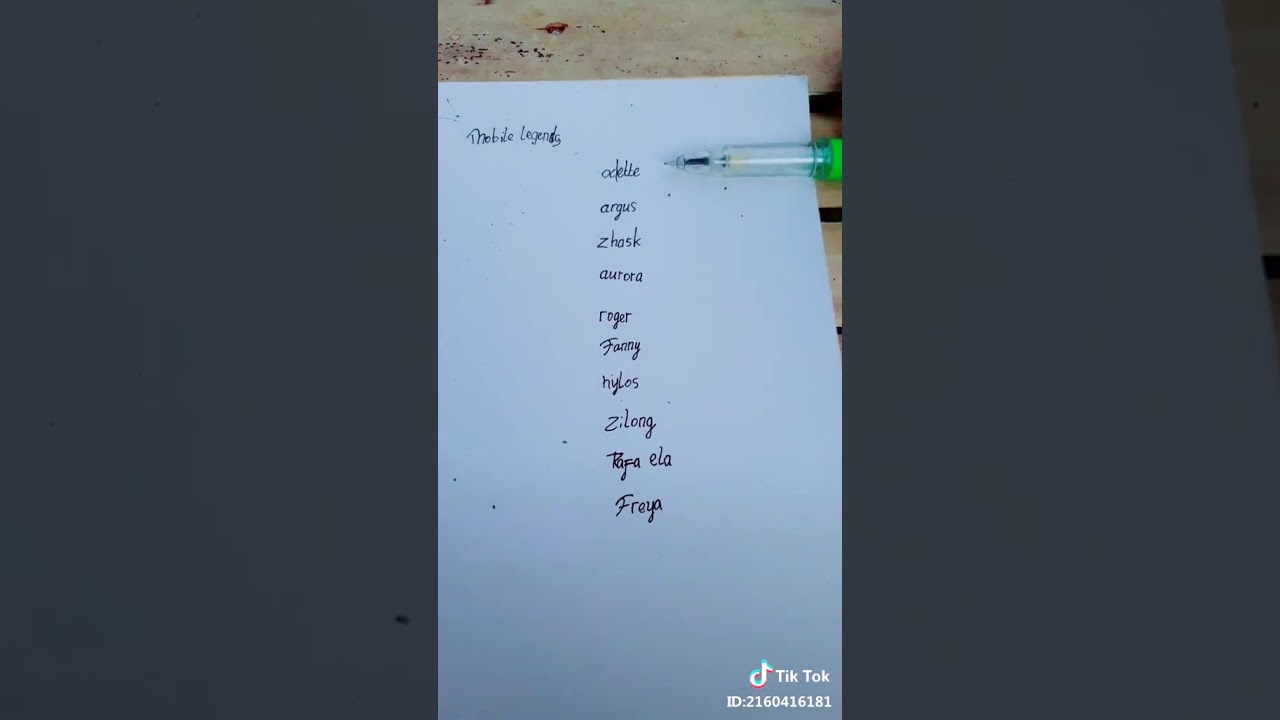 Mobile Legends
odette
argus
zhask
aurora
roger
Fanny
hylos
Zilong
ela
Freya
Tik Tok
ID:2160416181